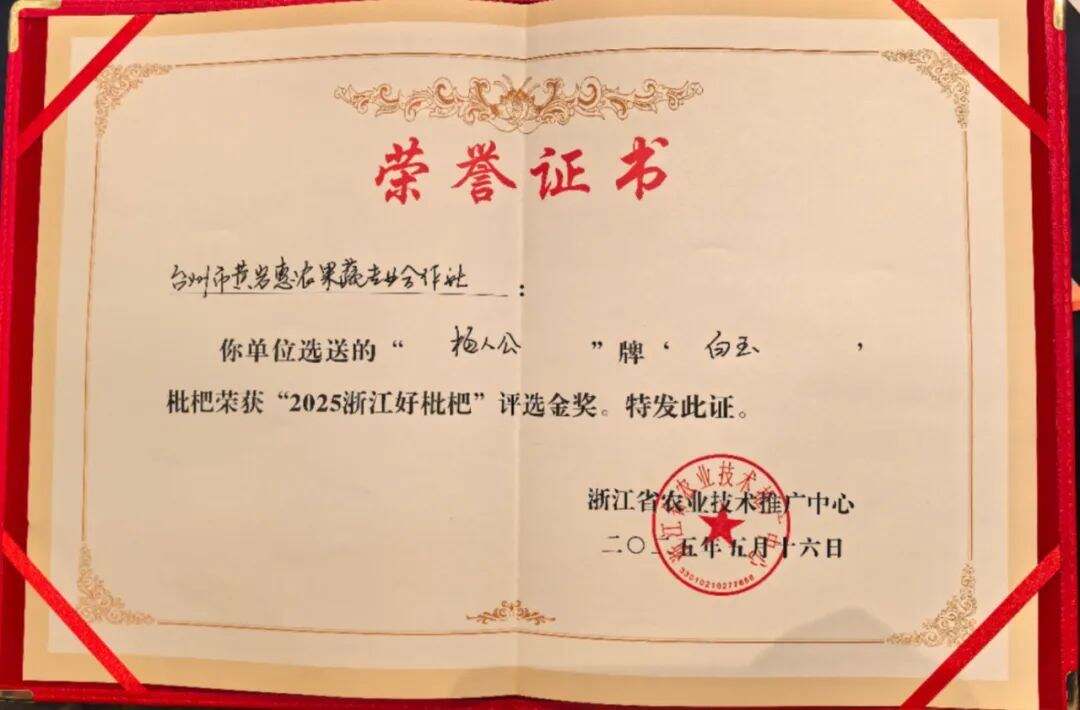 荣誉证书
台州市黄岩惠农果蔬专业合作社：
你单位选送的“ 杨人公 ”牌‘ 白玉 ’
枇杷荣获“2025浙江好枇杷”评选金奖。特发此证。
浙江省农业技术推广中心
二〇二五年五月十六日
浙江省农业技术推广中心